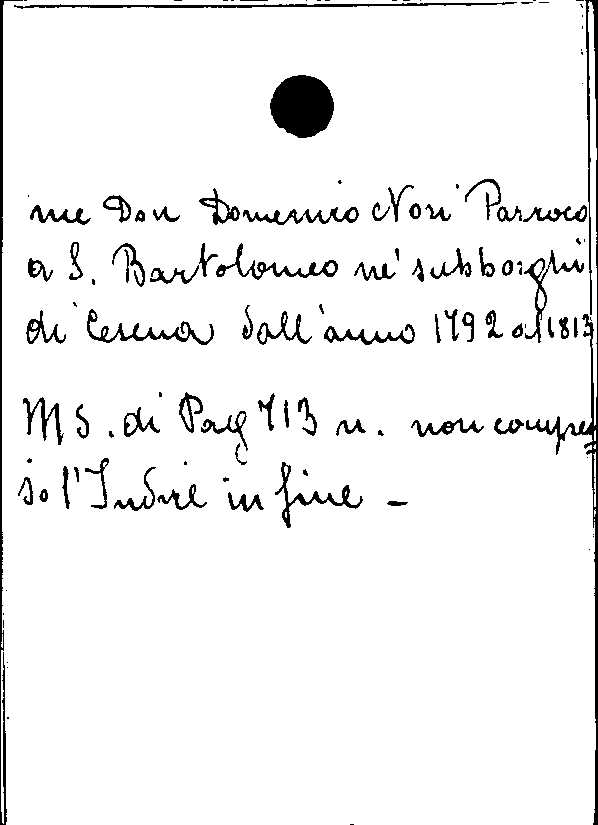 me Don Domenico Nori Parroco
a S. Bartolomeo ne' subborghi
di Cesena dall'anno 1792 al 1813
MS. di Pag 713 n. non compre=
so l'Indice in fine -